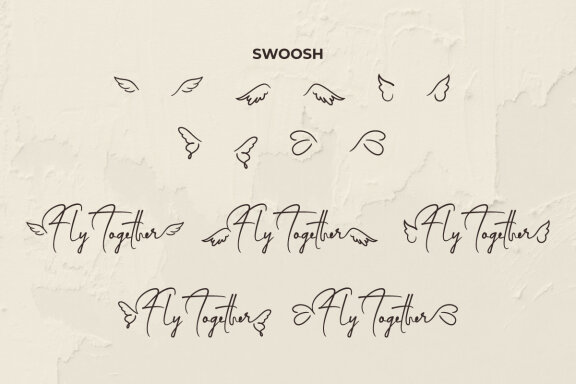 SWOOSH
Fly Together Fly Together Fly Together
Fly Together Fly Together